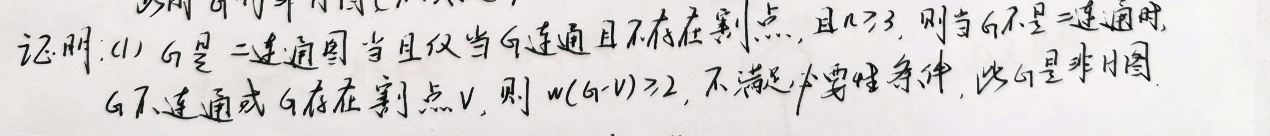 此时G为非H图
证明:(1) G是二连通图当且仅当G连通且不存在割点,且n≥3,则当G不是二连通时,
G不连通或G存在割点V,则 w(G-V)≥2,不满足必要性条件,此G是非H图.